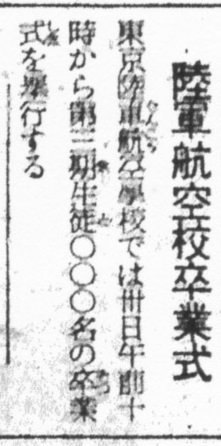 陸軍航空校卒業式
東京陸軍航空學校では卅日午前十
時から第三期生徒〇〇〇名の卒業
式を擧行する